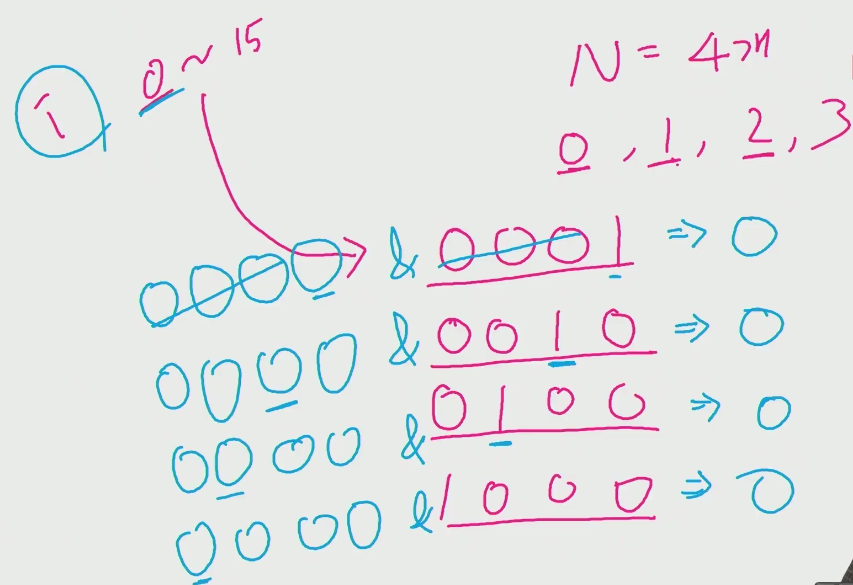 i 0 ~ 15
N = 4개
0, 1, 2, 3
0000 & 0001 => 0
0000 & 0010 => 0
0000 & 0100 => 0
0000 & 1000 => 0